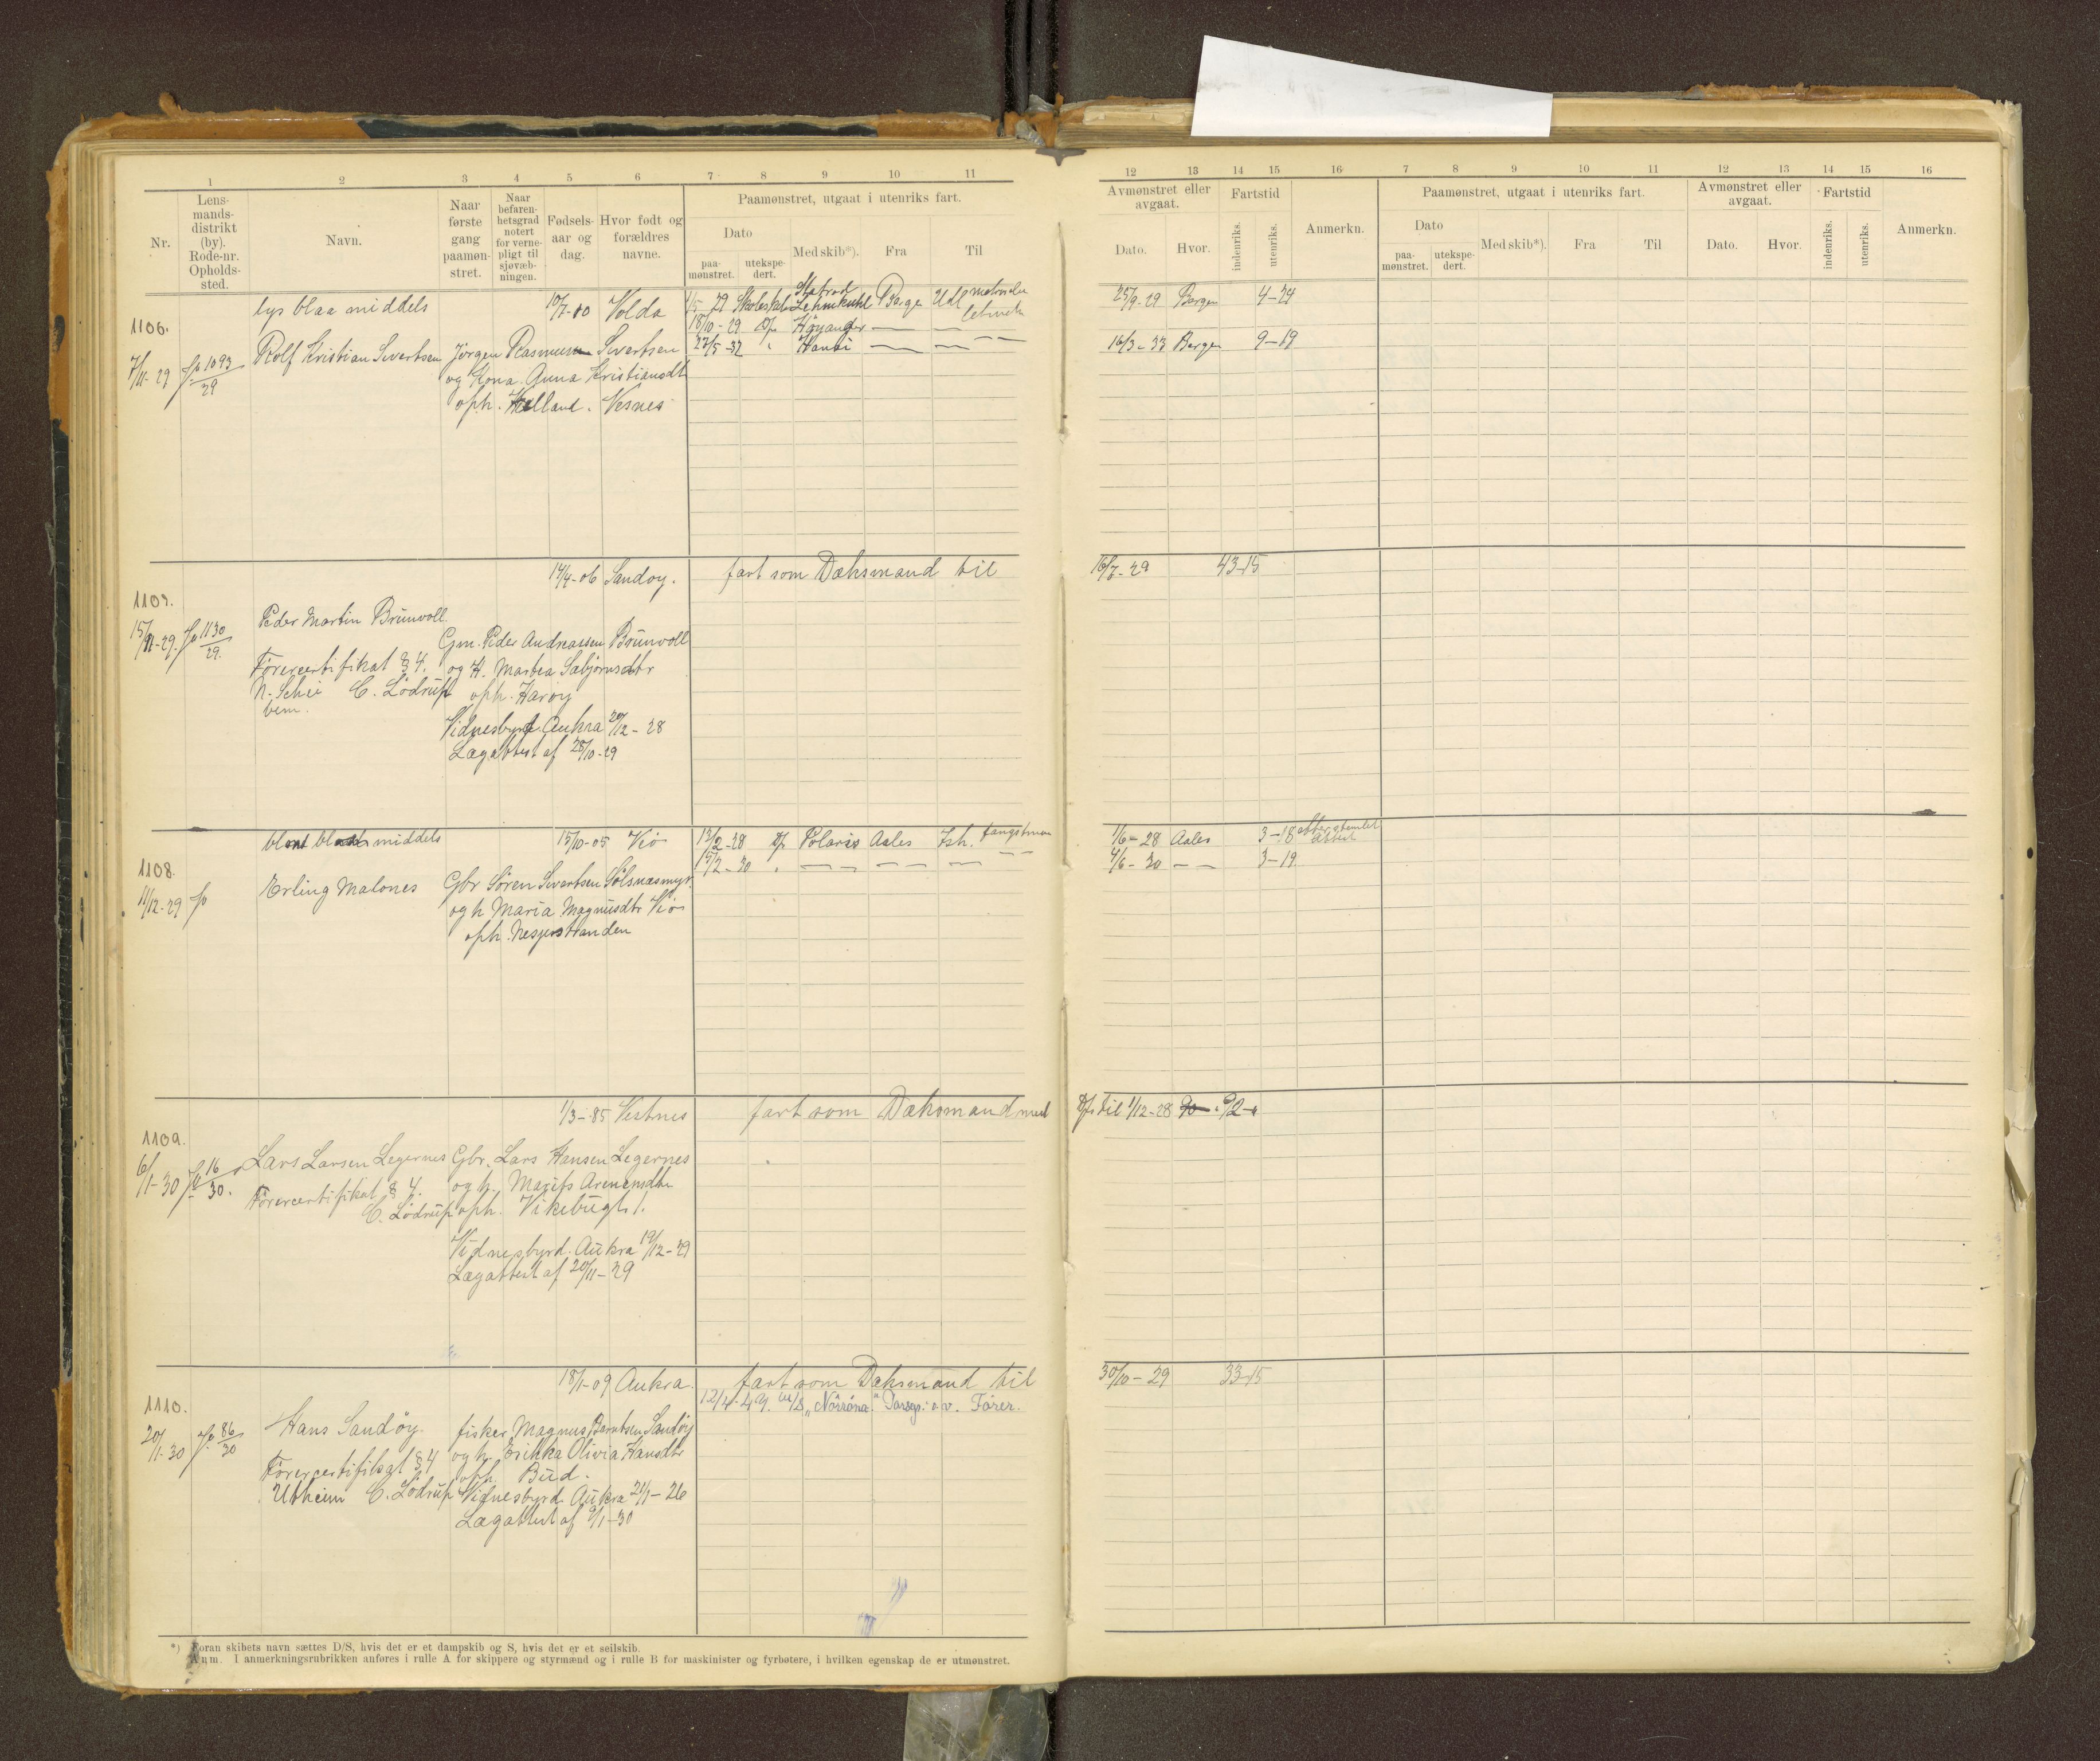 1 2 3 4 5 6 7 8 9 10 11
Nr.
Lens-
mands-
distrikt
(by).
Rode-nr.
Opholds-
sted.
Navn.
Naar
første
gang
paamøn-
stret.
Naar
befaren-
hetsgrad
notert
for verne-
pligt til
sjøvæb-
ningen.
Fødsels-
aar og
dag.
Hvor født og
forældres
navne.
Paamønstret, utgaat i utenriks fart.
Dato
paa-
mønstret.
utekspe-
dert.
Med skib*).
Fra
Til
12 13 14 15 16 7 8 9 10 11 12 13 14 15 16
Avmønstret eller
avgaat.
Dato.
Hvor.
Fartstid
indenriks.
utenriks.
Anmerkn.
Paamønstret, utgaat i utenriks fart.
Dato
paa-
mønstret.
utekspe-
dert.
Med skib*).
Fra
Til
Avmønstret eller
avgaat.
Dato.
Hvor.
Fartstid
indenriks.
utenriks.
Anmerkn.
1106.
lys blaa middels 10/7-10 Volda 1/5-29 Statsraad Lehmkuhl Bergen Udl
25/9-29 Bergen 4-24
18/10-29 D/s Høyanger — —
27/5-32 " — — —
16/3-33 Bergen 9-19
7/11-29 1093/29 Rolf Kristian Sivertsen Jörgen Rasmus Sivertsen
og Kona Anna Kristiansdt
oph. Helland. Vesnes
1107.
14/4-06 Sandoy. fart som Dæksmand til
43-15
15/11-29 1130/29. Peder Martin Brunvoll
Gm. Peder Andreassen Brunvoll
Førercertifikat § 4. og H. Martea Sæbjørnsdtr
C. Lödrup oph. Harøy
Vidnesbyrd Aukra 20/12-28
Lægattest af 28/10-29
1108.
middels 15/10-05 Viö 13/2-28 Polaris Aales Ish. fangstman
1/6-28 Aales 3-18
15/2-30 — — — —
4/6-30 — 3-19
11/12-29 Erling Malones Gbr Sören Sivertsen Sölsnæsmyr
og h Maria Magnusdtr Viö
oph. Nesjestranden
1109.
1/3-85 Vestnes fart som Dæksmand med
til 1/12-28
6/1-30 16/30. Lars Larsen Legernes Gbr. Lars Hansen Legernes
Førercertifikat § 4 og h.
C. Lödrup oph. Vikebugt.
Vidnesbyrd. Aukra 19/12-29
Lægattest af 20/11-29
1110.
18/1-09 Aukra. fart som Dæksmand til
30/10-29 33-15
12/4-49. m/s „Nörröna" o.v. Fører.
20/1-30 86/30 Hans Sandöy. fisker Magnus Berntsen Sandöy
Førercertifikat § 4 og h. Erikka Olivia Hansdtr
oph. Bud.
Utheim C. Lödrup Vidnesbyrd Aukra 21/1-26
Lægattest af 9/1-30
*) Foran skibets navn sættes D/S, hvis det er et dampskib og S, hvis det er et seilskib.
Anm. I anmerkningsrubrikken anføres i rulle A for skippere og styrmænd og i rulle B for maskinister og fyrbøtere, i hvilken egenskap de er utmønstret.